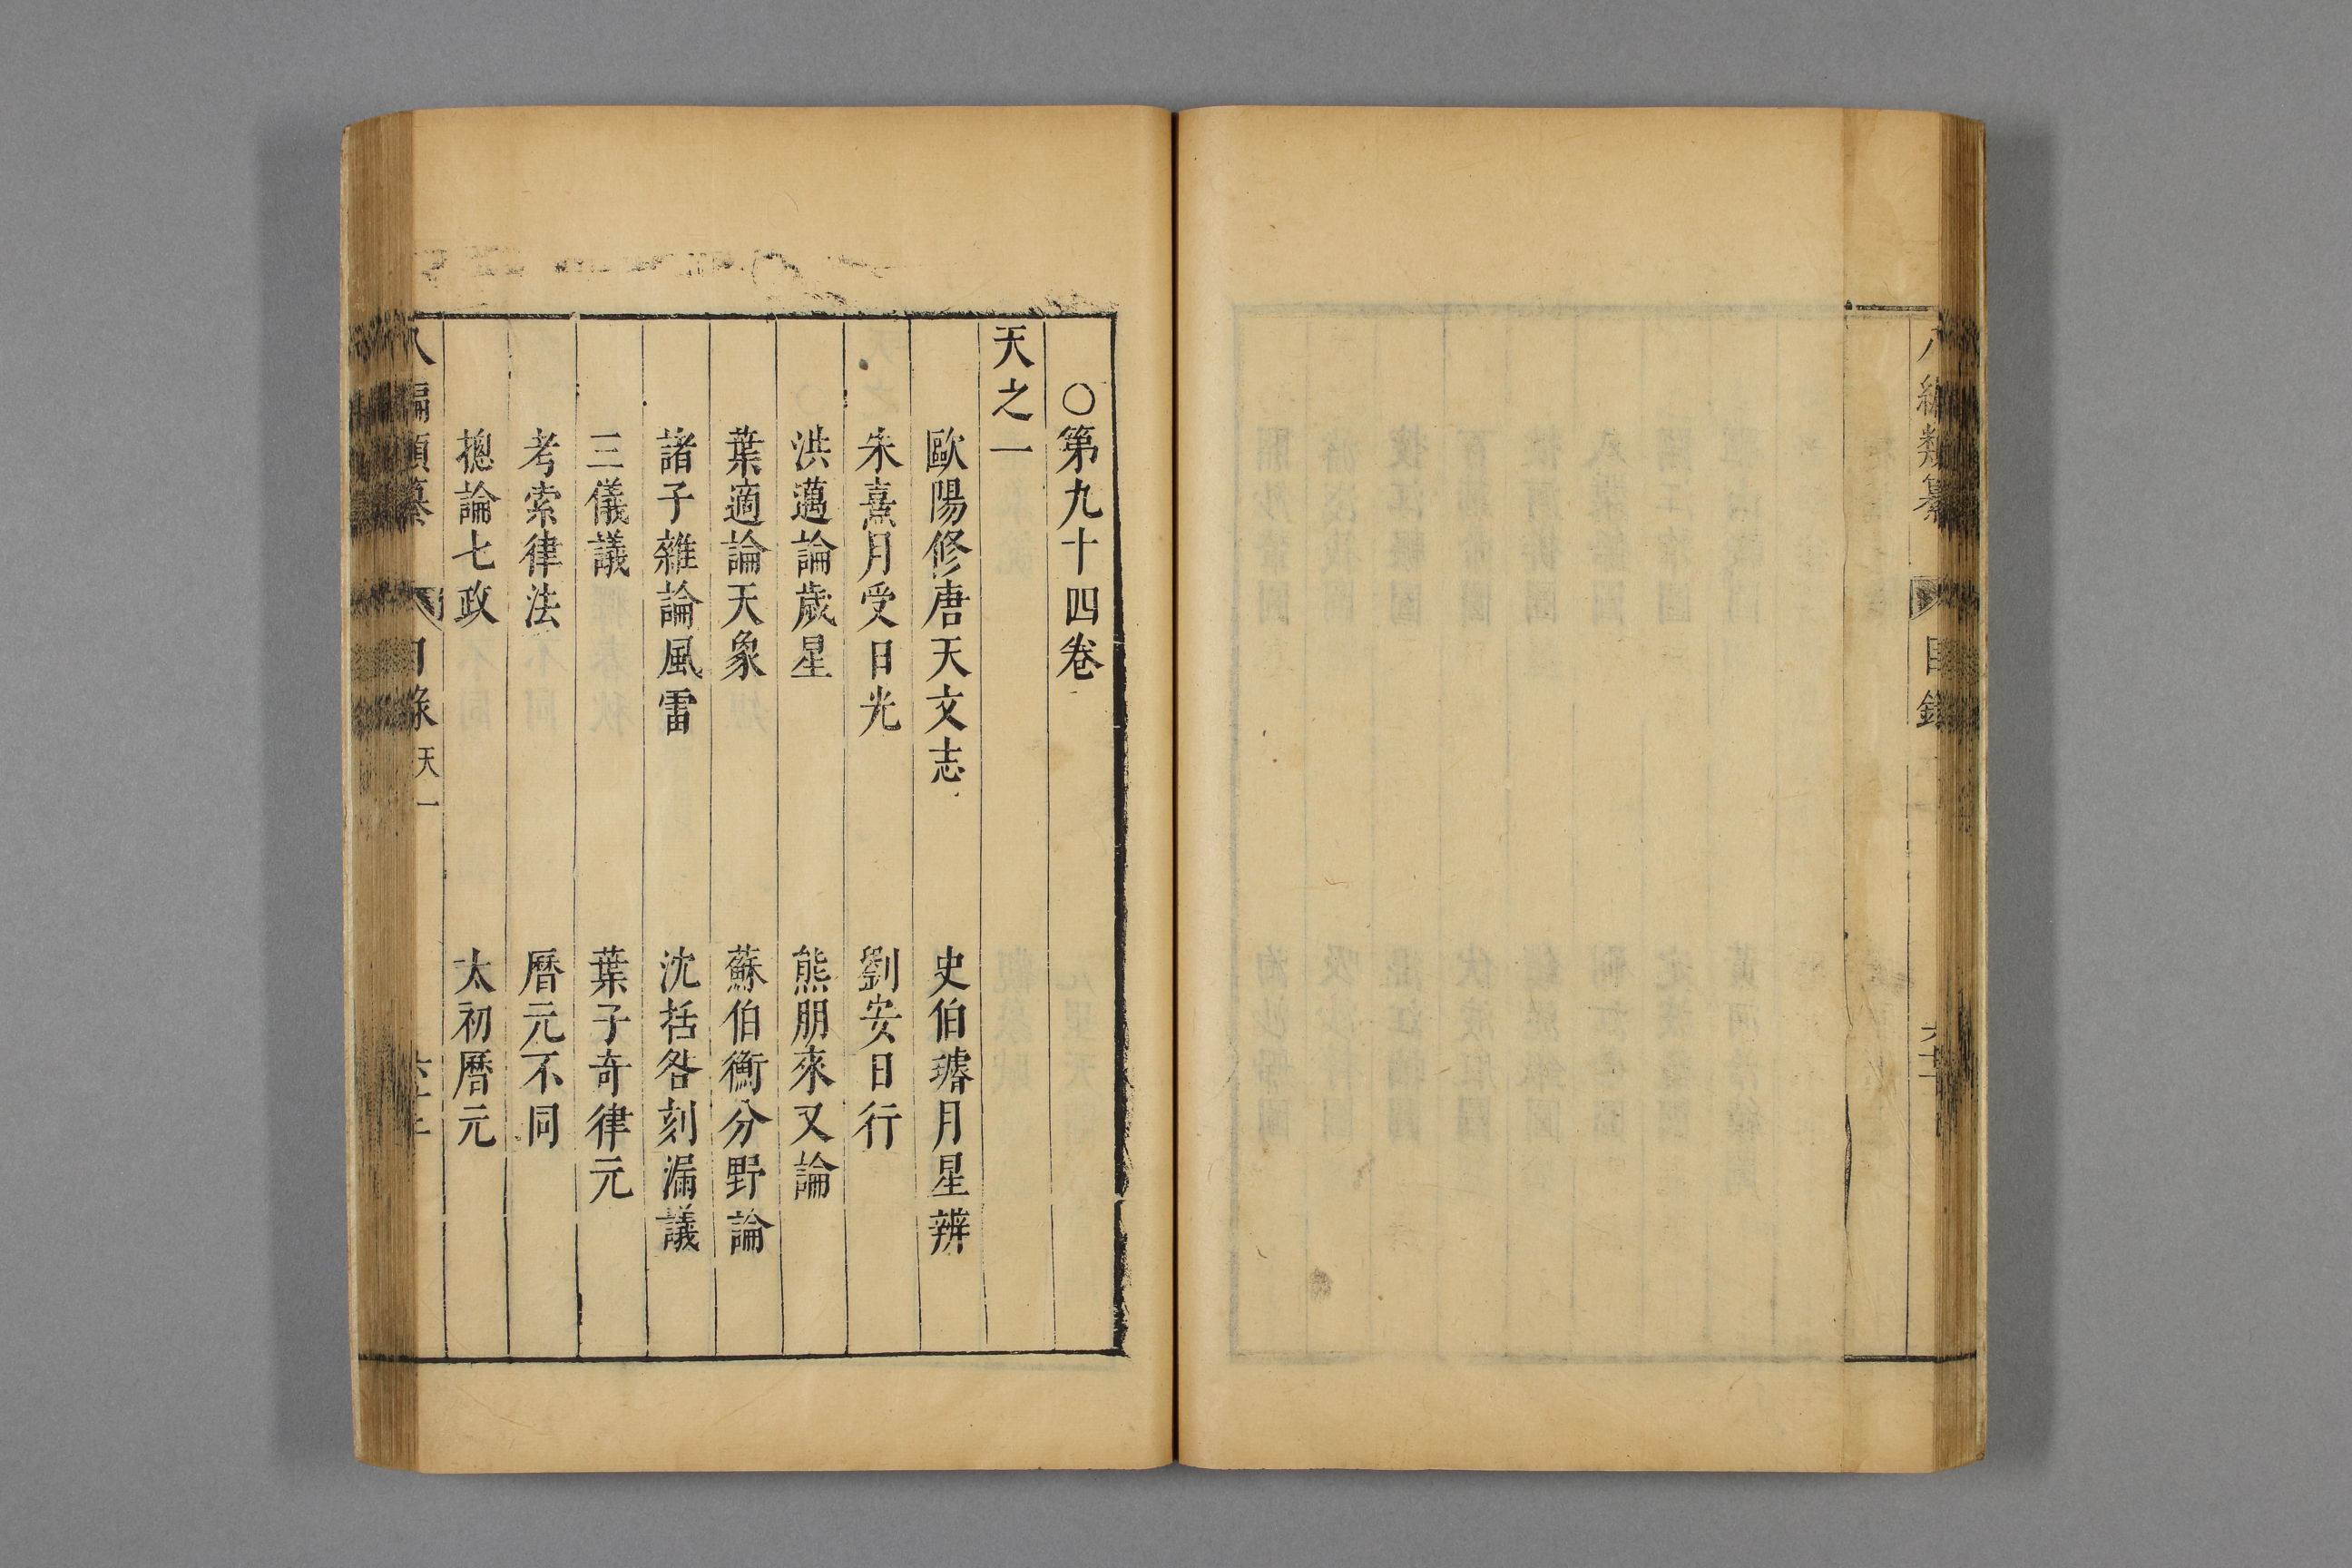 八編類纂 目錄
○第九十四卷
天之一
歐陽修唐天文志 史伯璿月星辨
朱熹月受日光 劉安日行
洪邁論歲星 熊朋來又論
葉適論天象 蘇伯衡分野論
諸子雜論風雷 沈括晷刻漏議
三儀議 葉子奇律元
考索律法 曆元不同
摠論七政 太初曆元
八編類纂 目錄 天一